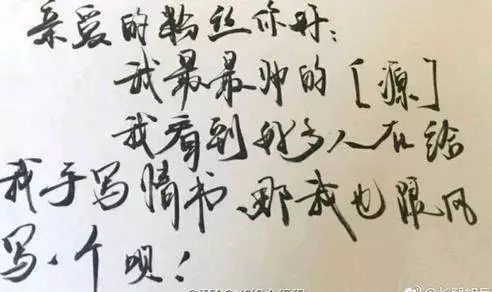 亲爱的粉丝你好:
我最最帅的[源]
我看到好多人在给
我手写情书、那我也跟风
写一个呗!